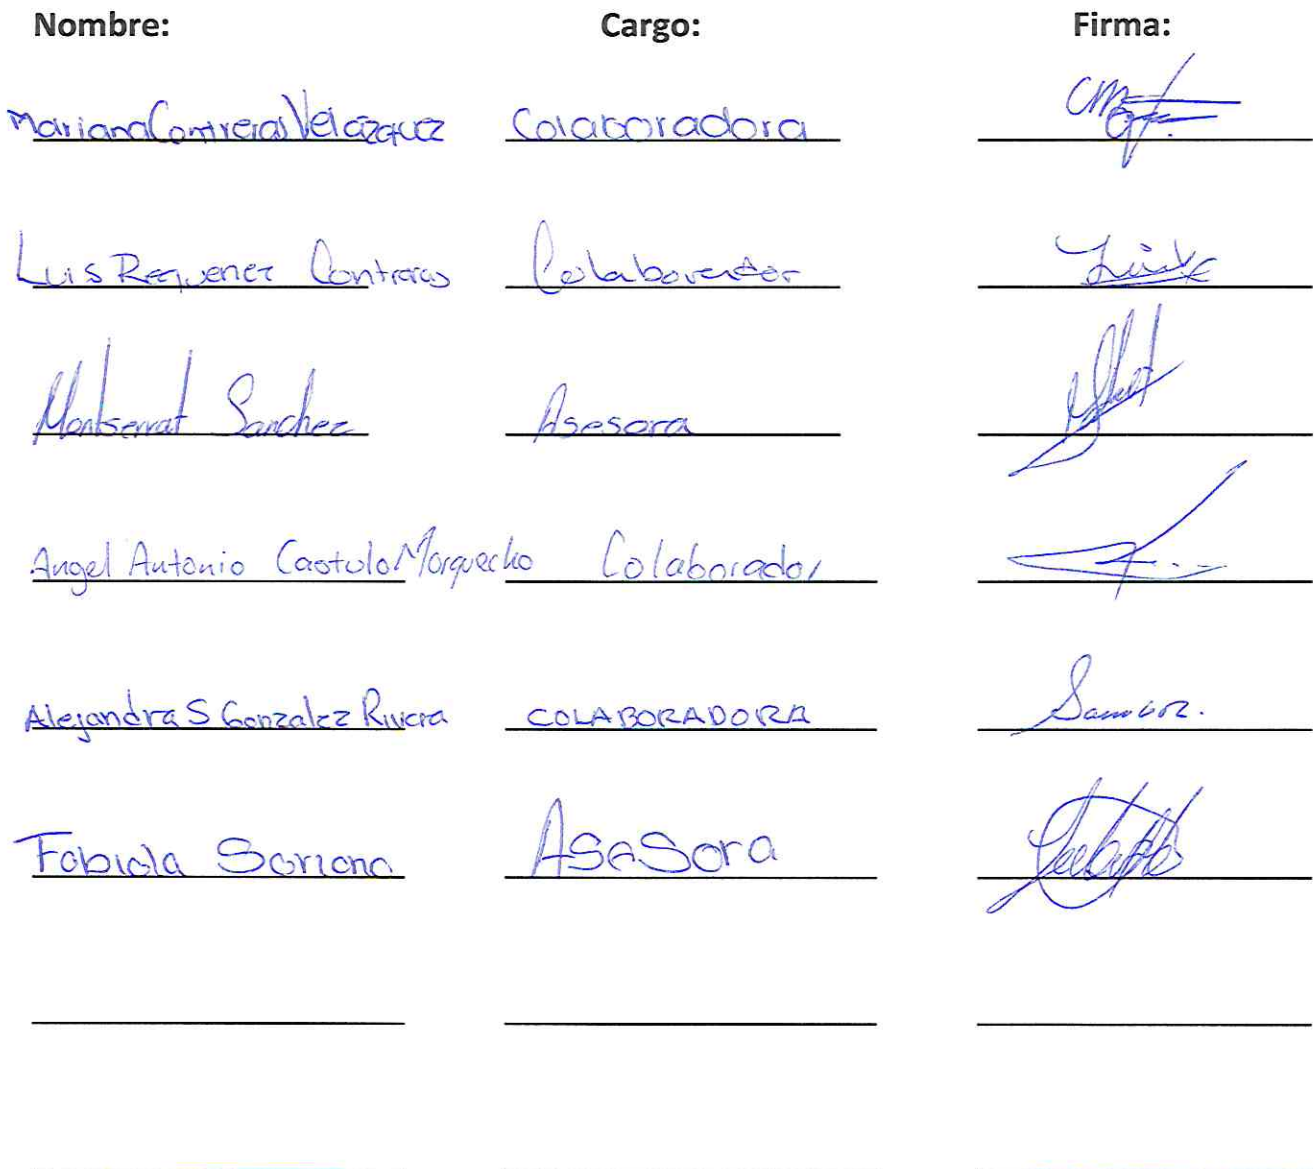 Nombre: Cargo: Firma:
Mariana Contreras Velázquez Colaboradora
Luis Requenez Contreras Colaborador
Montserrat Sanchez Asesora
Angel Antonio Castulo Morquecho Colaborador
Alejandra S Gonzalez Rivera COLABORADORA
Fabiola Soriano Asesora